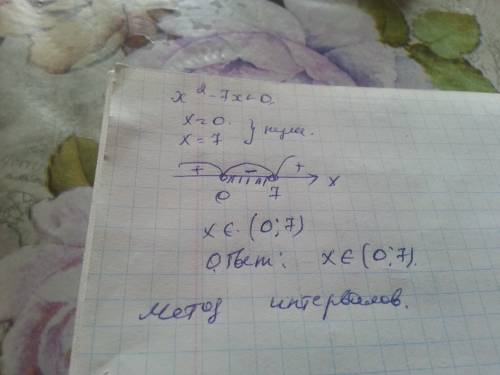 x²-7x<0.
x=0.
x=7 } нули.
+ - + x
0 7
x∈(0;7)
Ответ: x∈(0;7).
Метод интервалов.